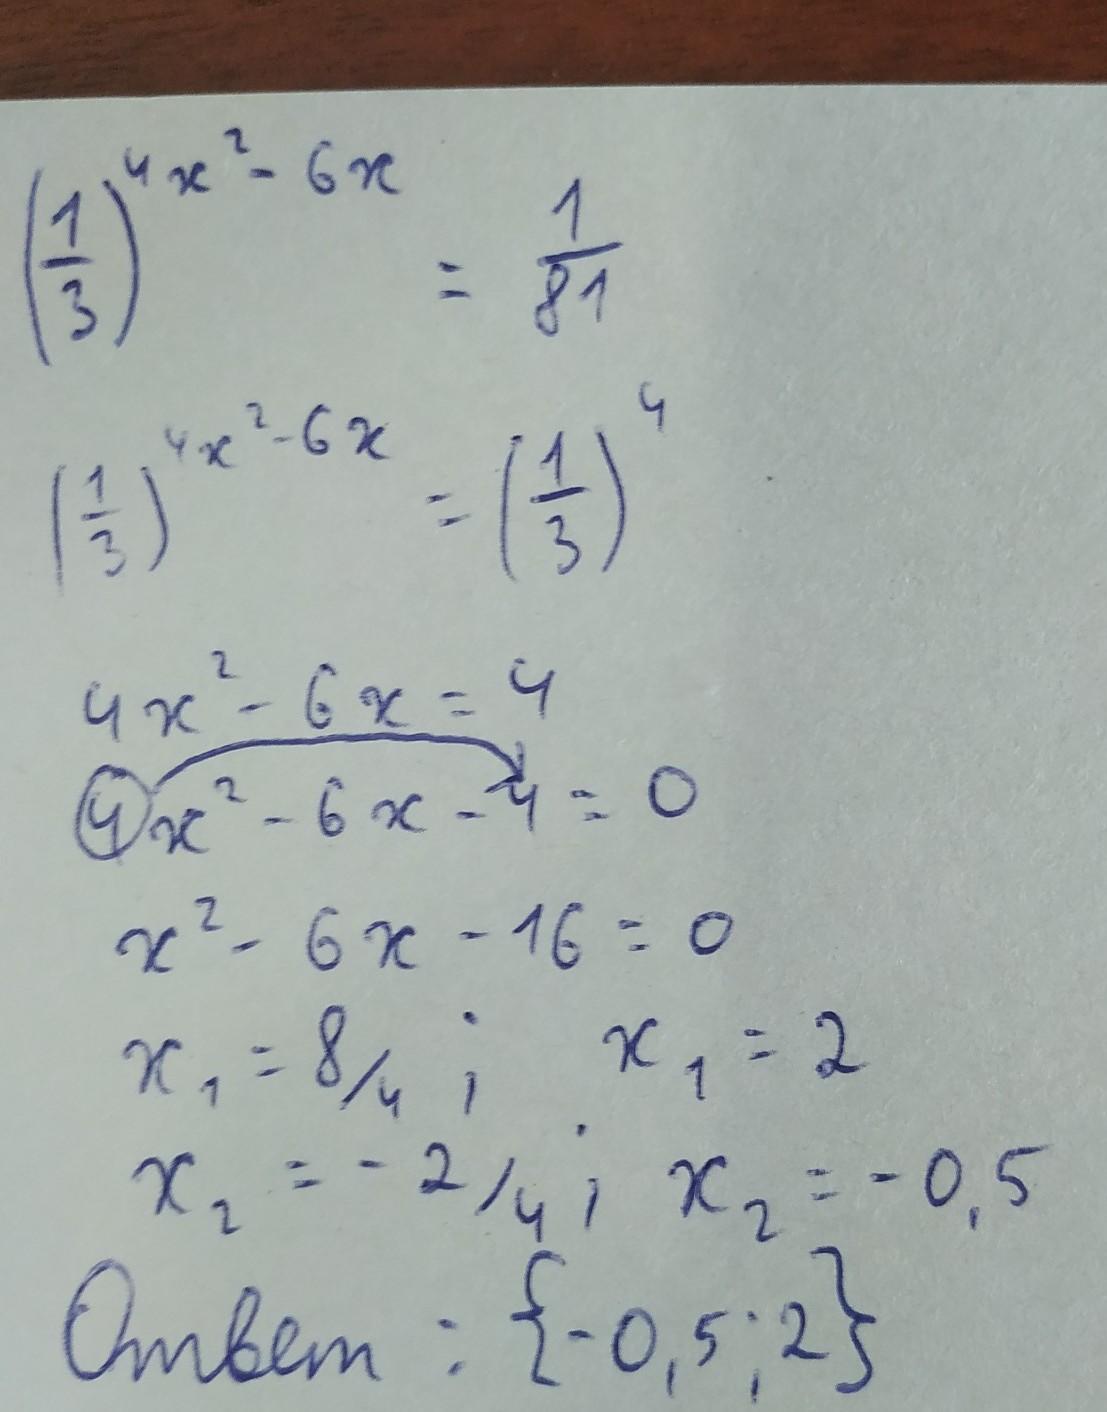 (1/3)^4x²-6x = 1/81
(1/3)^4x²-6x = (1/3)^4
4x² - 6x = 4
4x² - 6x - 4 = 0
x² - 6x - 16 = 0
x₁ = 8/4 ; x₁ = 2
x₂ = -2/4 ; x₂ = -0,5
Ответ : {-0,5;2}